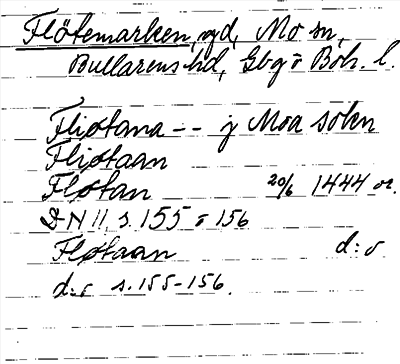 Flötemarken, gd, Mo sn,
Bullarens hd, Gbg o Boh. l.
Fliøtana -- j Moa sokn
Fliøtaan
Fløtan 20/6 1444 or.
DN II, s. 155 o 156
Fløtaan d:o
d:o s. 155-156.